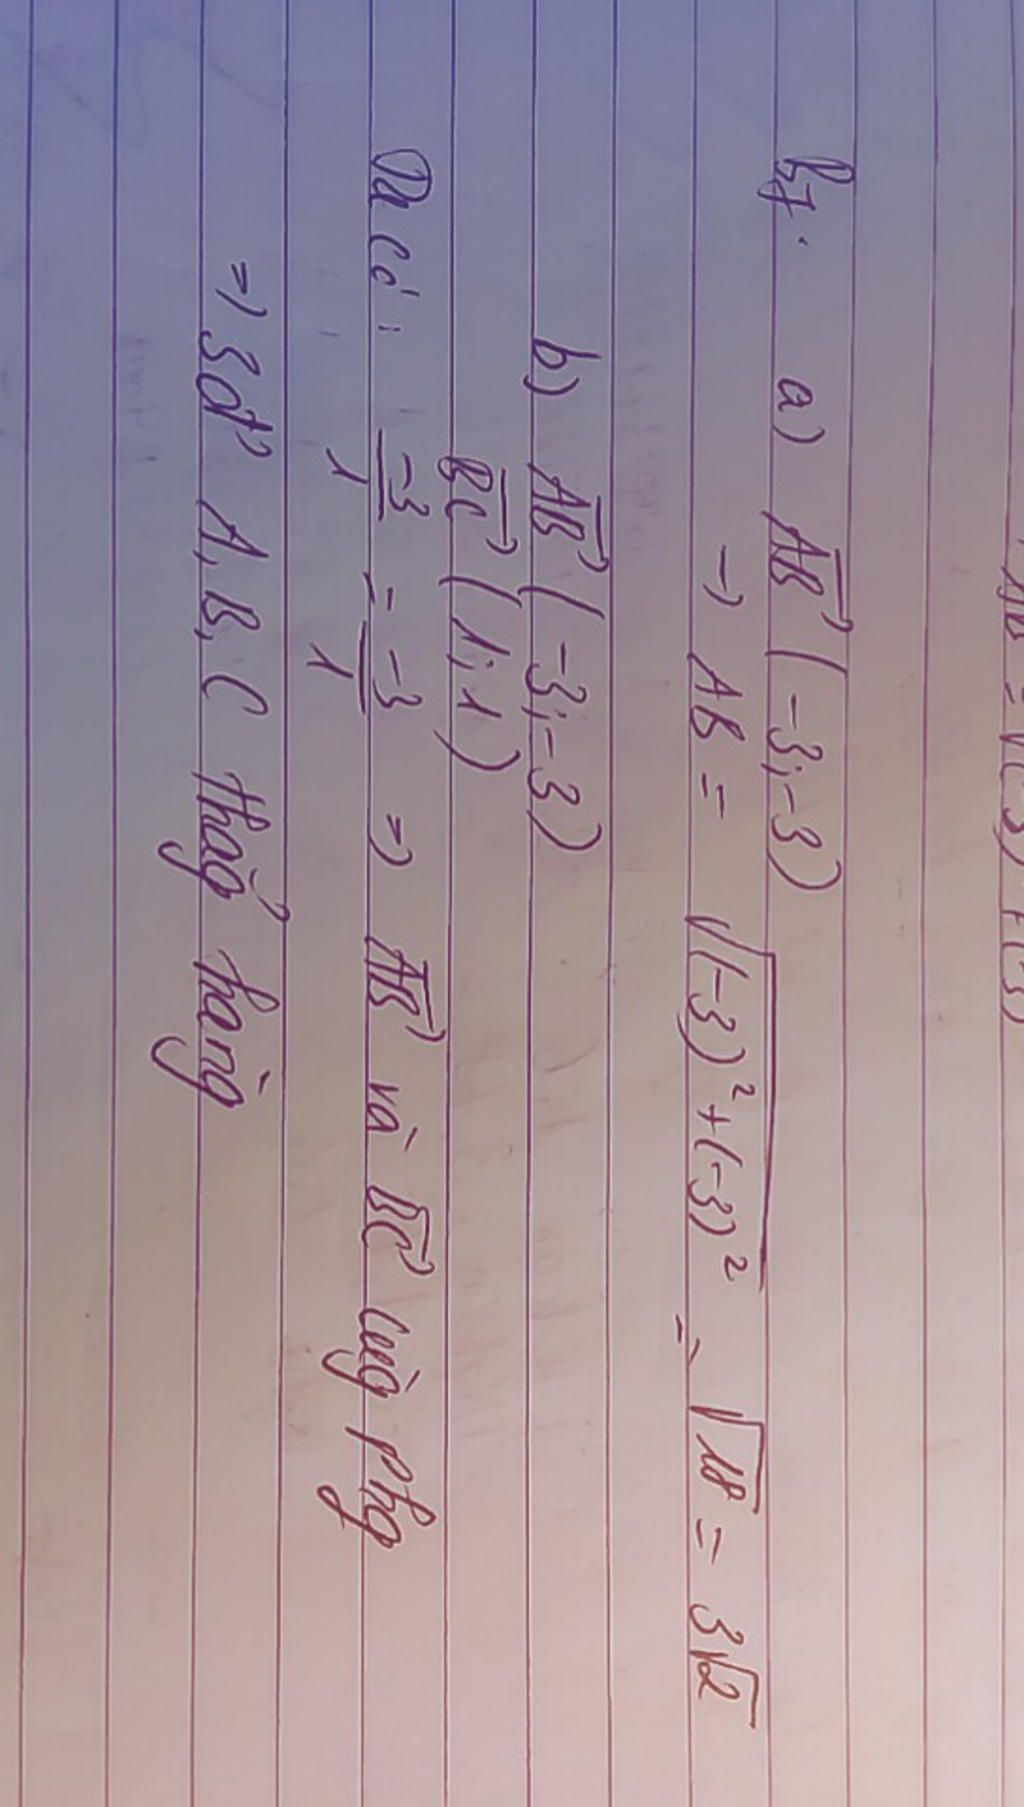 AB = √(-3)²+(-3)
B7. a) AB→ (-3;-3)
→ AB = √(-3)²+(-3)² = √18 = 3√2
b) AB→ (-3;-3)
BC→ (1;1)
Ta có: -3/1 = -3/1 => AB→ và BC→ cùng phg
=> 3đ' A, B, C thẳg hàng